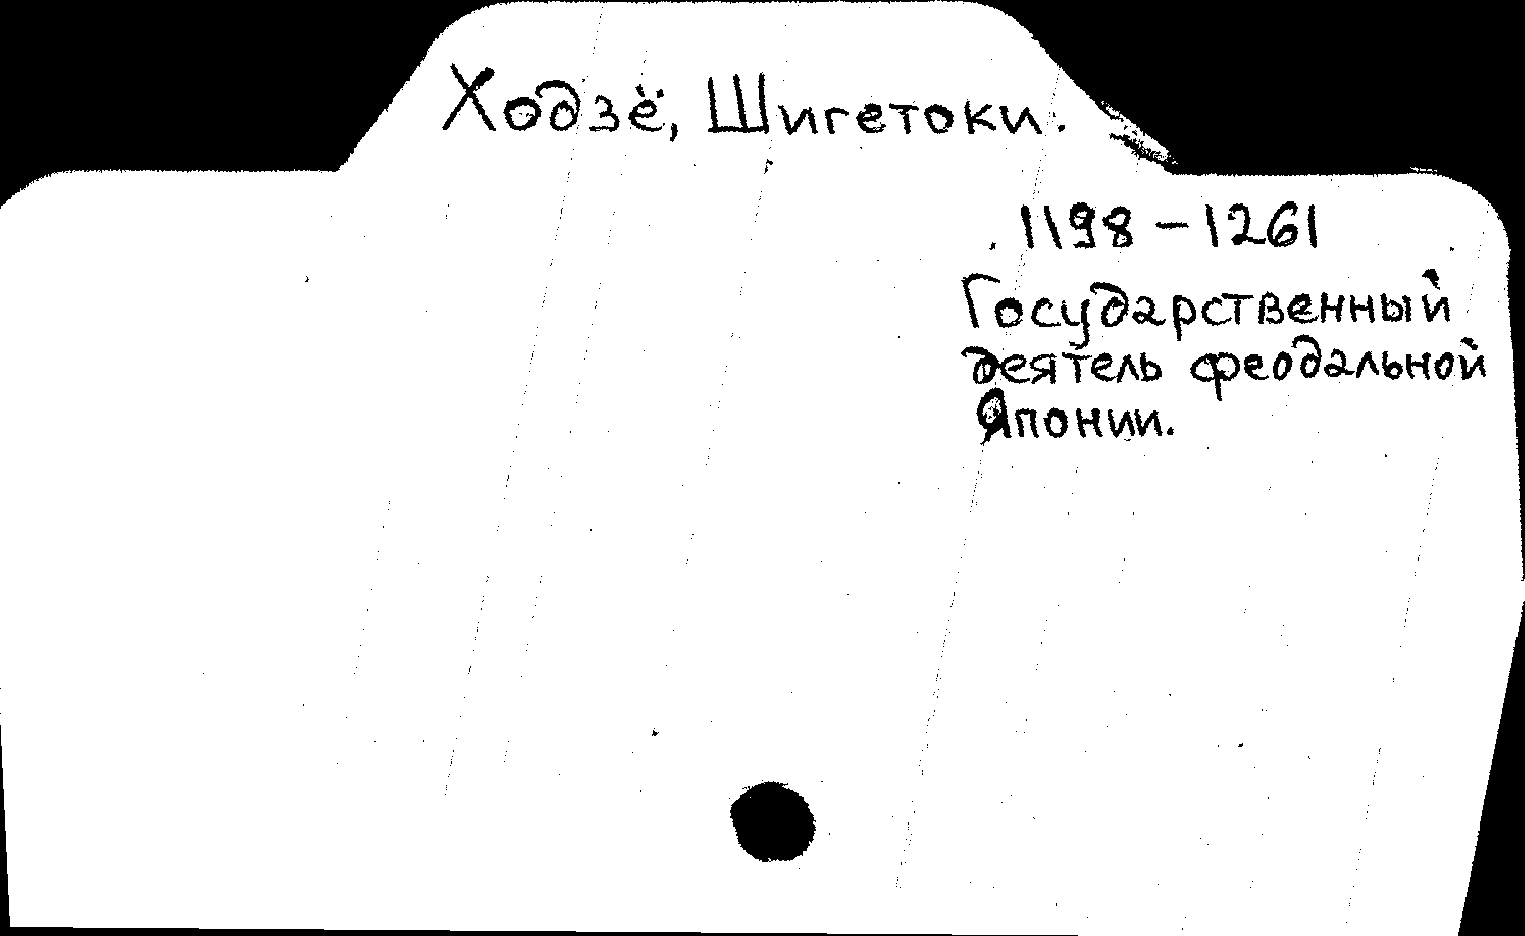 Ходзё, Шигетоки.
1198 – 1261
Государственный
деятель феодальной
Японии.